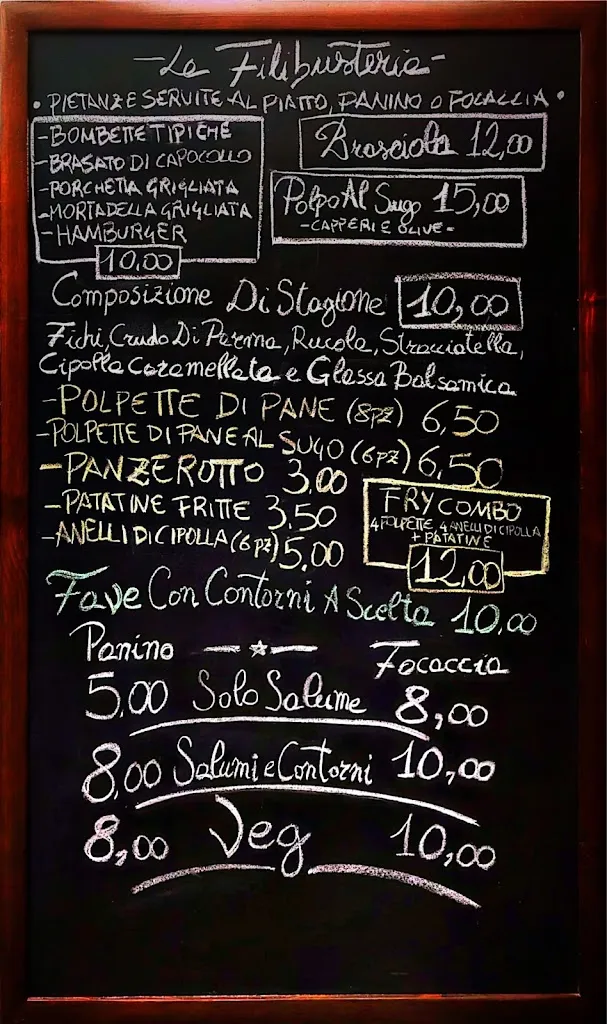 -La Filibusteria-
• PIETANZE SERVITE AL PIATTO, PANINO O FOCACCIA •
-BOMBETTE TIPICHE
-BRASATO DI CAPOCOLLO
-PORCHETTA GRIGLIATA
-MORTADELLA GRIGLIATA
-HAMBURGER
10,00
Brasciola 12,00
Polpo Al Sugo 15,00
-CAPPERI E OLIVE-
Composizione Di Stagione 10,00
Fichi, Crudo Di Parma, Rucola, Stracciatella,
Cipolla Caramellata e Glassa Balsamica
-POLPETTE DI PANE (8PZ) 6,50
-POLPETTE DI PANE AL SUGO (6PZ) 6,50
-PANZEROTTO 3,00
-PATATINE FRITTE 3,50
-ANELLI DI CIPOLLA (6PZ) 5,00
FRY COMBO
4 POLPETTE, 4 ANELLI DI CIPOLLA
+ PATATINE
12,00
Fave Con Contorni A Scelta 10,00
Panino Focaccia
5,00 Solo Salume 8,00
8,00 Salumi e Contorni 10,00
8,00 Veg 10,00